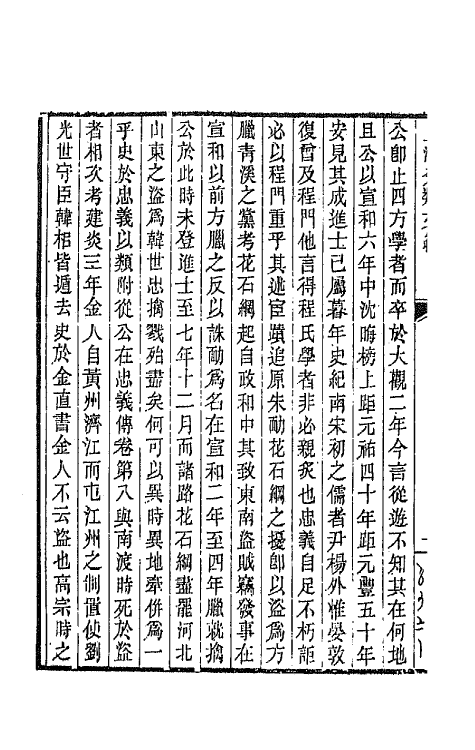 公卽止四方學者而卒於大觀二年今言從遊不知其在何地
且公以宣和六年中沈晦榜上距元祐四十年距元豐五十年
安見其成進士已屬暮年史紀南宋初之儒者尹楊外惟晏敦
復曾及程門他言得程氏學者非必親炙也忠義自足不朽詎
必以程門重乎其述宦蹟追原朱勔花石綱之擾卽以盜爲方
臘青溪之黨考花石綱起自政和中其致東南盜賊竊發事在
宣和以前方臘之反以誅勔爲名在宣和二年至四年臘就擒
公於此時未登進士至七年十二月而諸路花石綱盡罷河北
山東之盜爲韓世忠擒戮殆盡矣何可以異時異地牽併爲一
乎史於忠義以類附從公在忠義傳卷第八與南渡時死於盜
者相次考建炎三年金人自黃州濟江而屯江州之側置使劉
光世守臣韓梠皆遁去史於金直書金人不云盜也高宗時之